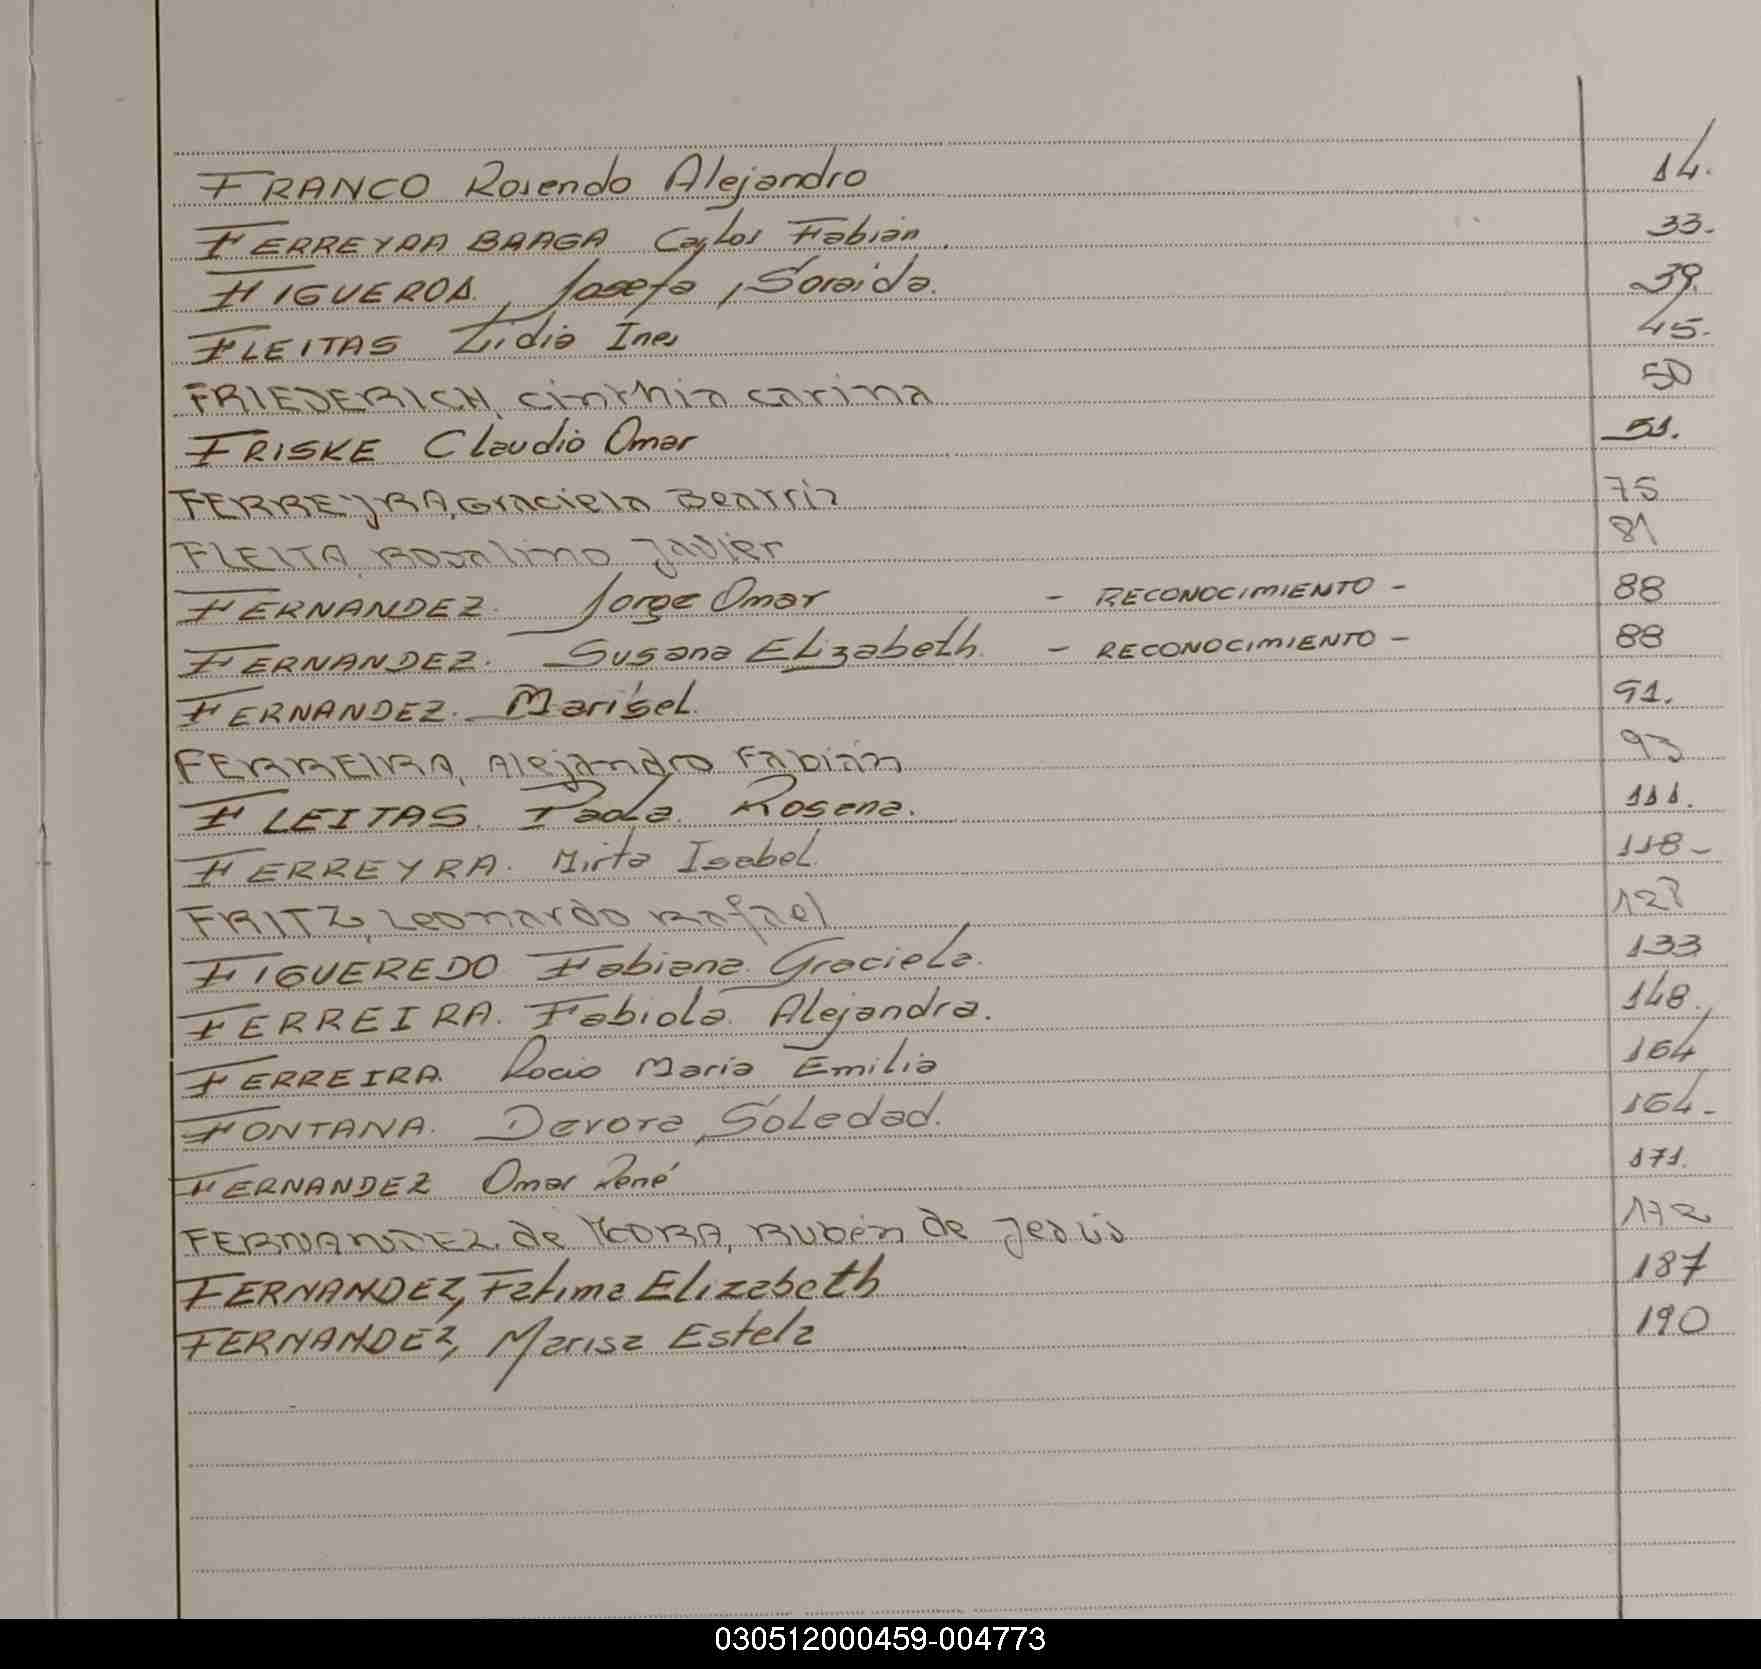 FRANCO Rosendo Alejandro 14.
FERREYRA BRAGA Carlos Fabian. 33.
FIGUEROA, Josefa, Soraida. 39.
FLEITAS Lidia Ines 45.
FRIEDERICH, Cinthia Carina 50
FRISKE Claudio Omar 51.
FERREYRA, Graciela Beatriz 75
FLEITA, Rosalino Javier 81
FERNANDEZ. Jorge Omar - RECONOCIMIENTO - 88
FERNANDEZ. Susana Elizabeth - RECONOCIMIENTO - 88
FERNANDEZ. Marisel 91.
FERREIRA, Alejandro Fabián 93
FLEITAS. Paola. Rosana. 111.
FERREYRA. Mirta Isabel. 118-
FRITZ, Leonardo Rafael
FIGUEREDO Fabiana Graciela. 133
FERREIRA. Fabiola Alejandra. 148.
FERREIRA. Rocio Maria Emilia 164
FONTANA. Devora Soledad. 164.-
FERNANDEZ Omar René 171.
FERNANDEZ de MORA, Rubén de Jesús 172
FERNANDEZ, Fatima Elizabeth 187
FERNANDEZ, Marisa Estela 190
030512000459-004773